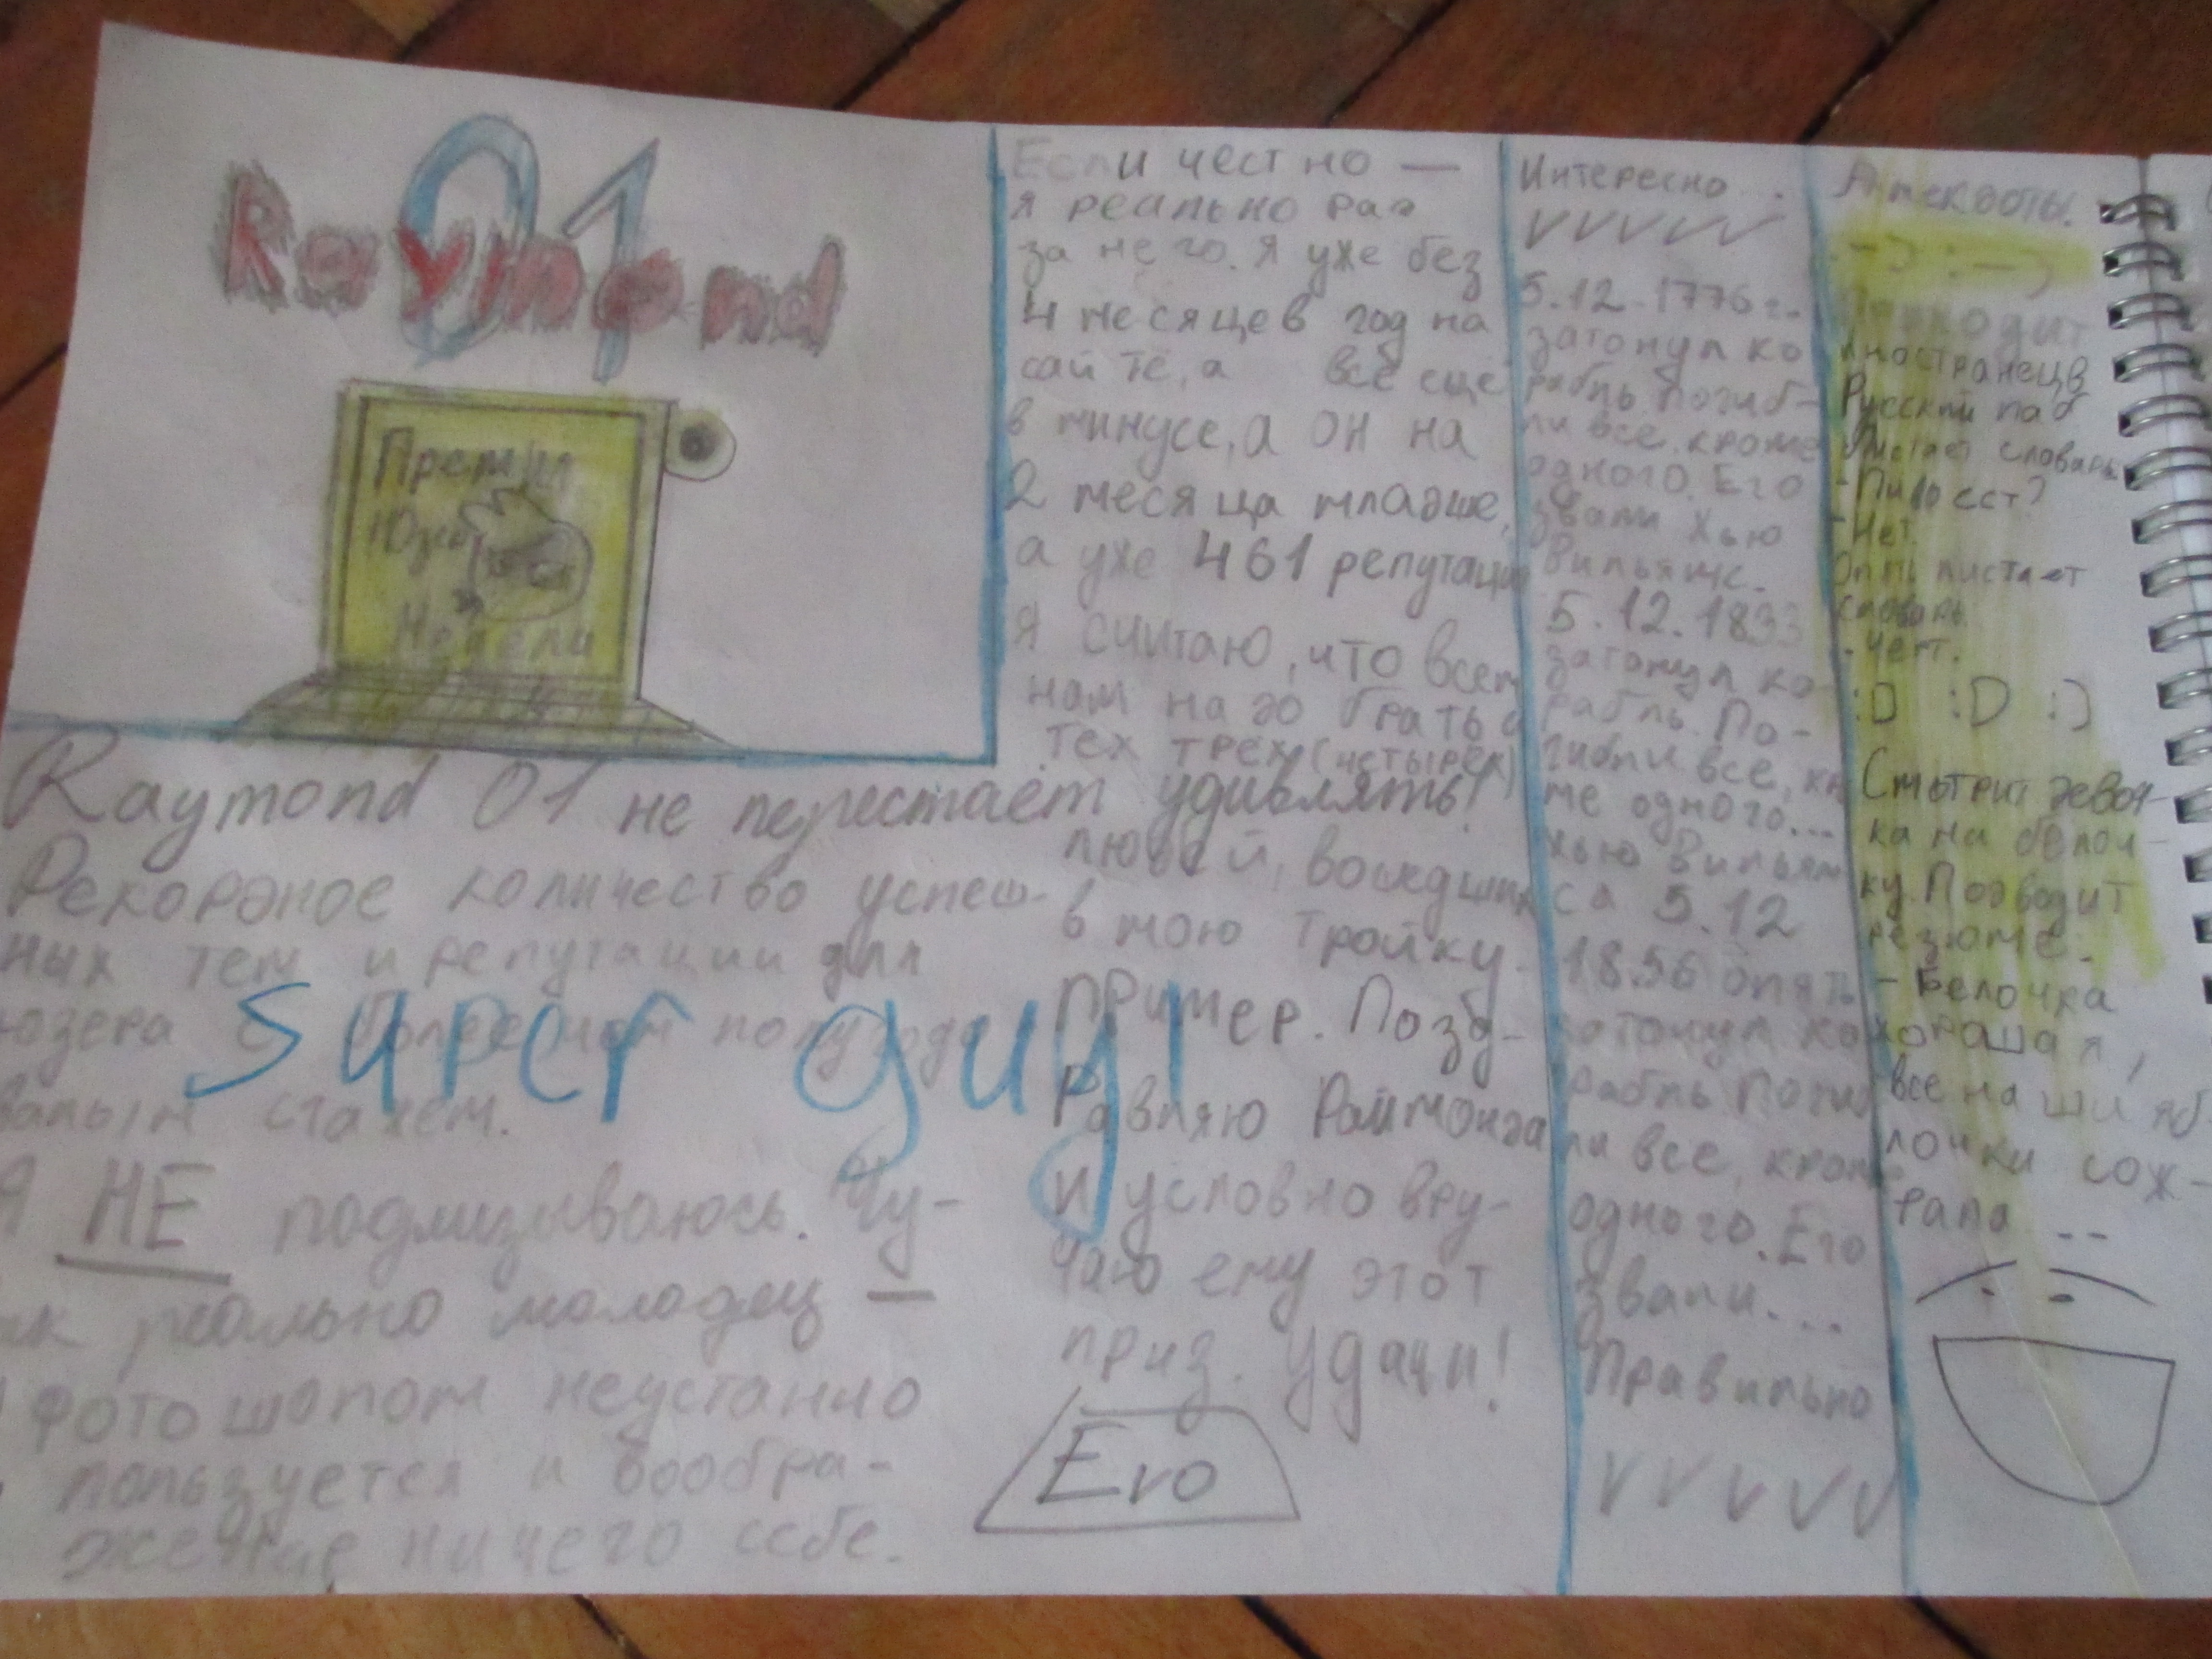 01
Raymond
Премия
Юзер
Недели
Raymond 01 не перестаёт удивлять!
Рекордное количество успеш-
ных тем и репутации для
юзера с более чем полугодо
валым стажем.
Super guy!
Я НЕ подлизываюсь. Чу-
ак реально молодец —
фотошопом неустанно
пользуется и вообра-
жение ничего себе.
Если честно —
я реально рад
за него. Я уже без
4 месяцев год на
сайте, а всё ещё
в минусе, а он на
2 месяца младше,
а уже 461 репутации
Я считаю, что всем
нам надо брать с
тех трёх (четырёх)
людей, вошедших
в мою тройку.
пример. Позд-
равляю Раймонда
и условно вру-
чаю ему этот
приз. Удачи!
Evo
Интересно...
VVVVV
5.12.1776 г.
затонул ко
рабль. Погиб-
ли все, кроме
одного. Его
звали Хью
Вильямс.
5.12.1833
затонул ко-
рабль. По-
гибли все, кро
ме одного...
Хью Вильям
са 5.12
1856 опять
затонул ко
рабль Погиб
ли все, кроме
одного. Его
звали...
Правильно
VVVVV
Анекдоты.
:-) :-)
Приходит
иностранец в
Русский паб
Листает словарь
- Пиво ест?
- Нет.
Опять листает
словарь.
- Чёрт.
:D :D :)
Смотрит девоч-
ка на белоч-
ку. Подводит
резюме.
- Белочка
хорошая,
все наши яб
лочки сож-
рала